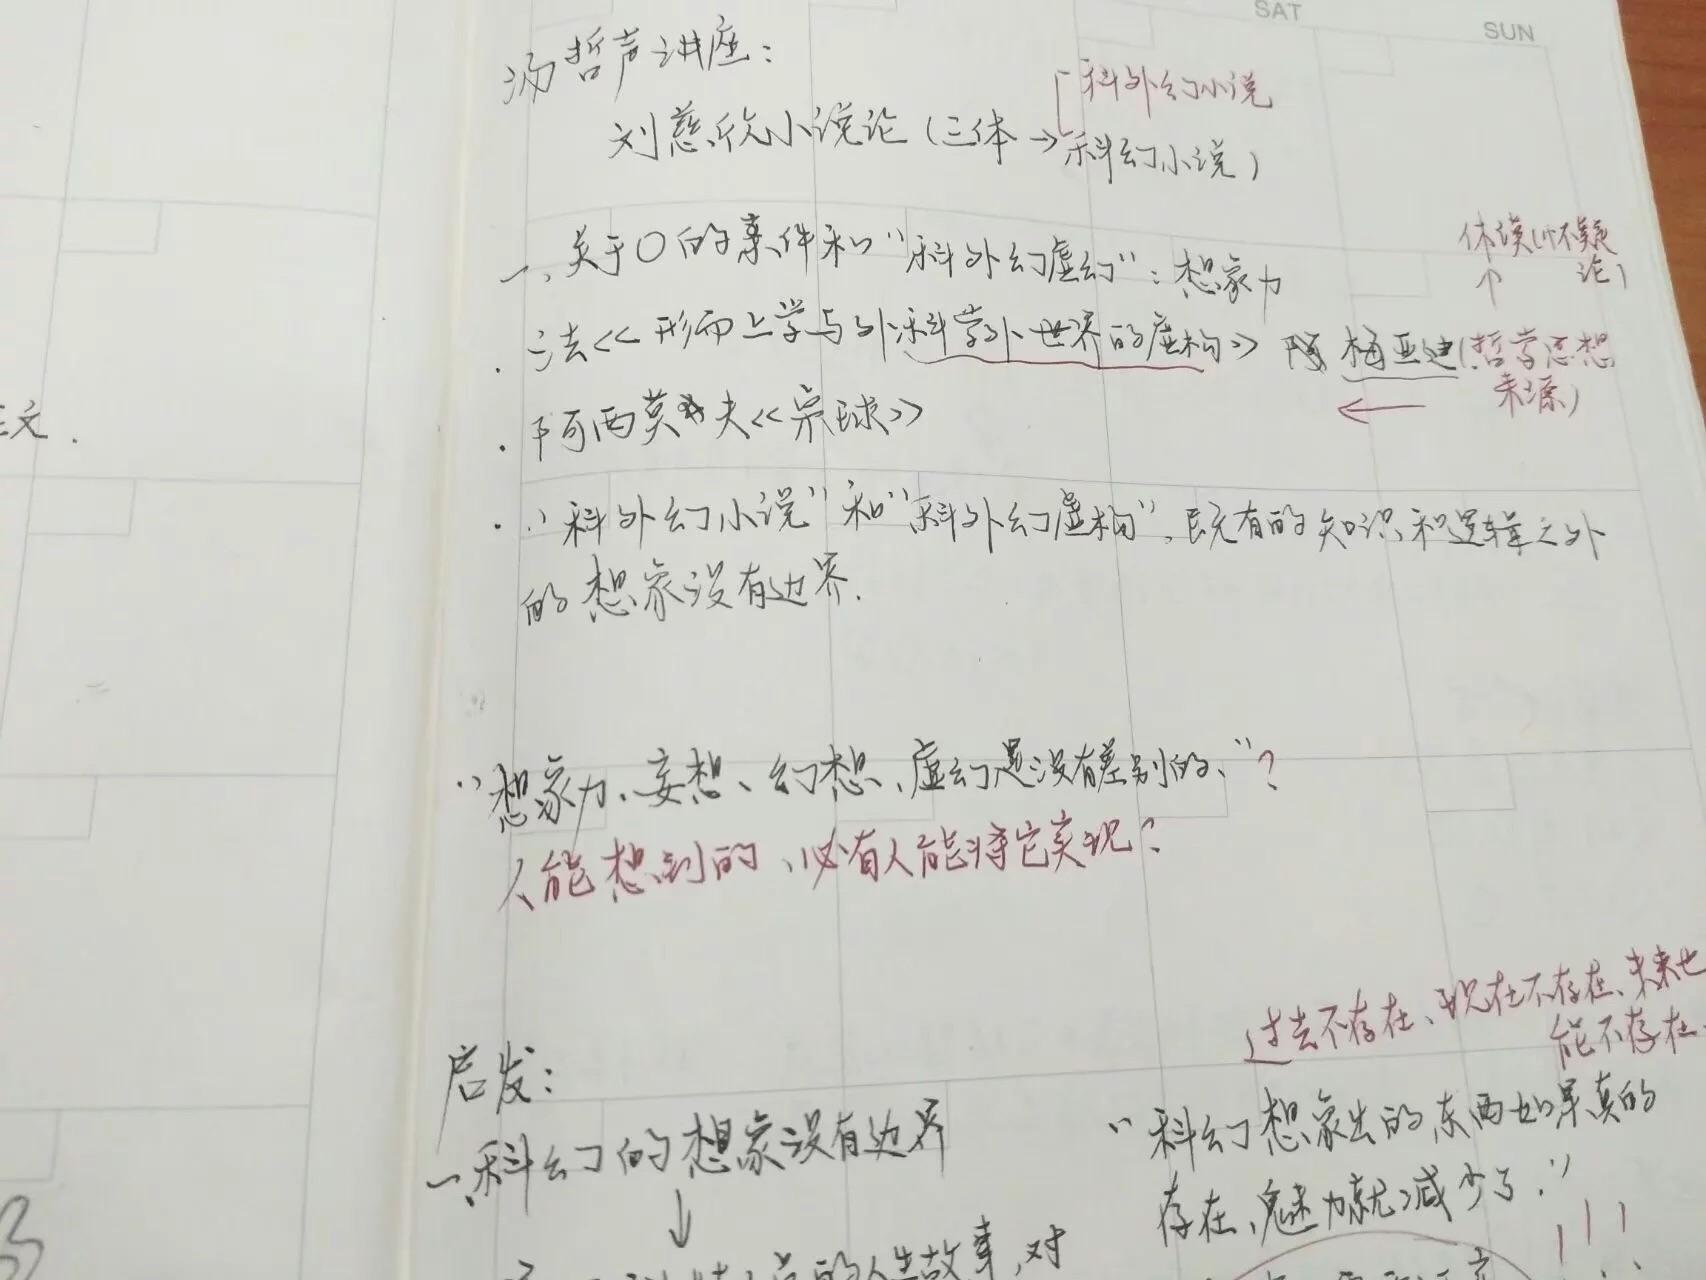 SAT
SUN
汤哲声讲座：
科外幻小说
刘慈欣小说论（三体→科幻小说）
一、关于〇的案件和"科外幻虚幻"：想象力
休谟（怀疑
论）
↑
·法《形而上学与外科学外世界的虚构》 梅亚迪（哲学思想
来源）
←
·阿西莫夫《桌球》
·"科外幻小说"和"科外幻虚构"，既有的知识和逻辑之外
的想象没有边界.
"想象力、妄想、幻想、虚幻是没有差别的、"？
人能想到的、必有人能将它实现？
过去不存在、现在不存在、未来也
能不存在.
启发：
一、科幻的想象没有边界
↓
的人生故事，对
"科幻想象出的东西如果真的
存在、魅力就减少了."
!!!
文.